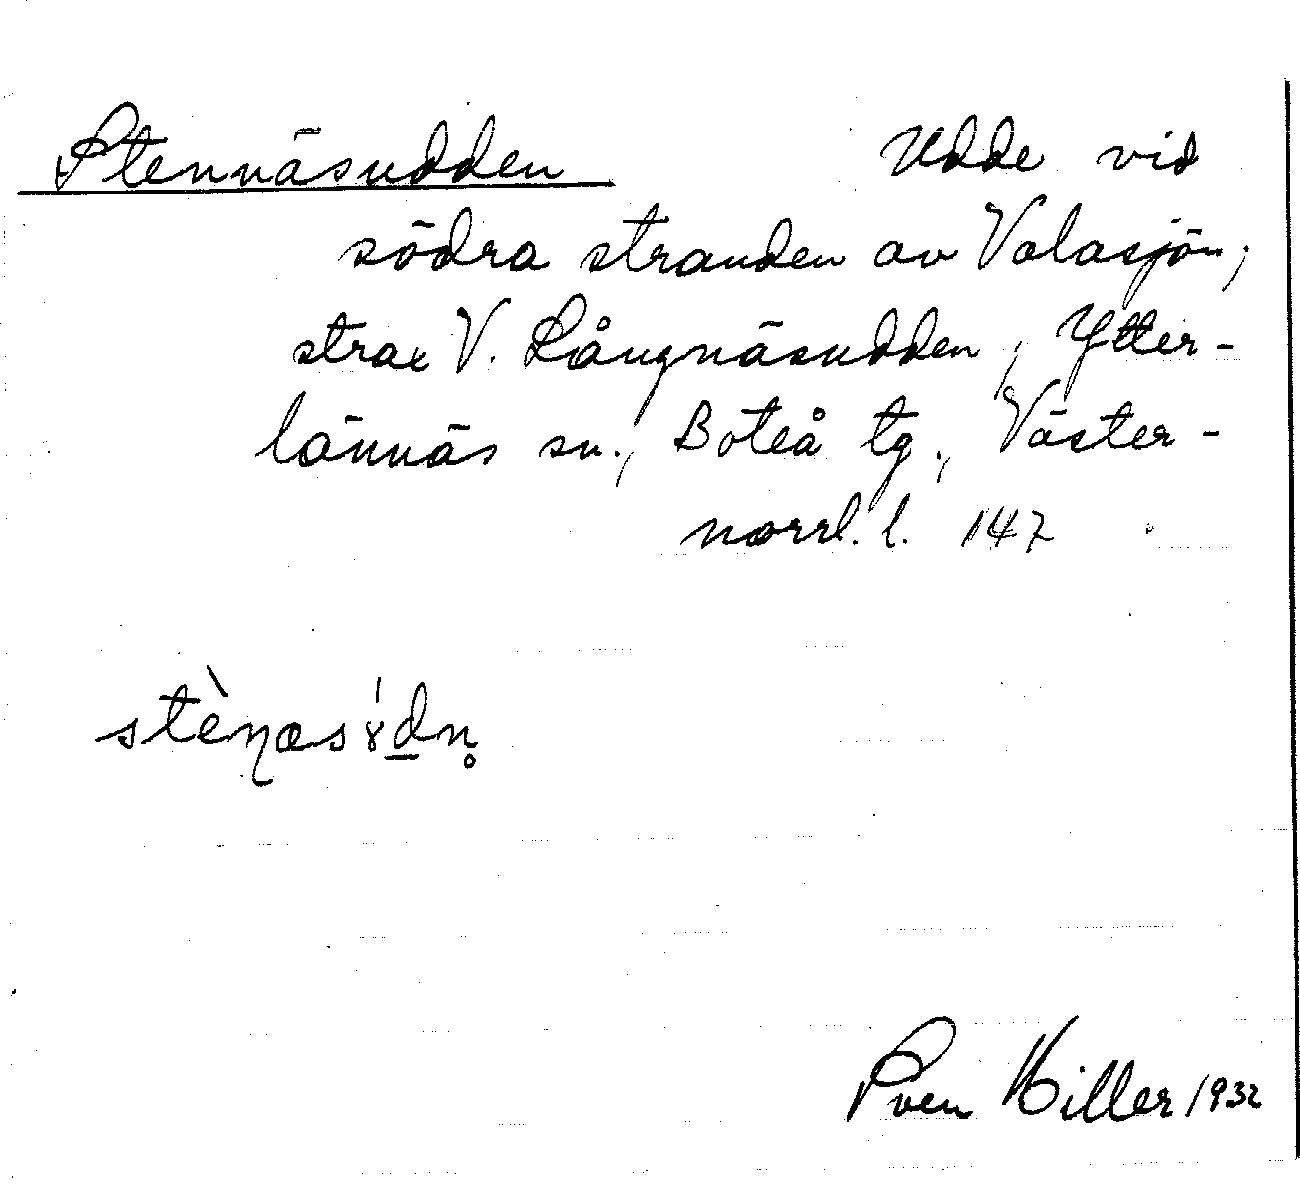 Stennäsudden Udde vid
södra stranden av Valasjön,
strax V. Långnäsudden, Ytter-
lännäs sn., Boteå tg., Väster-
norrl. l. 147
stèn̨æsɤ́d̲n̥
Sven Hiller 1932